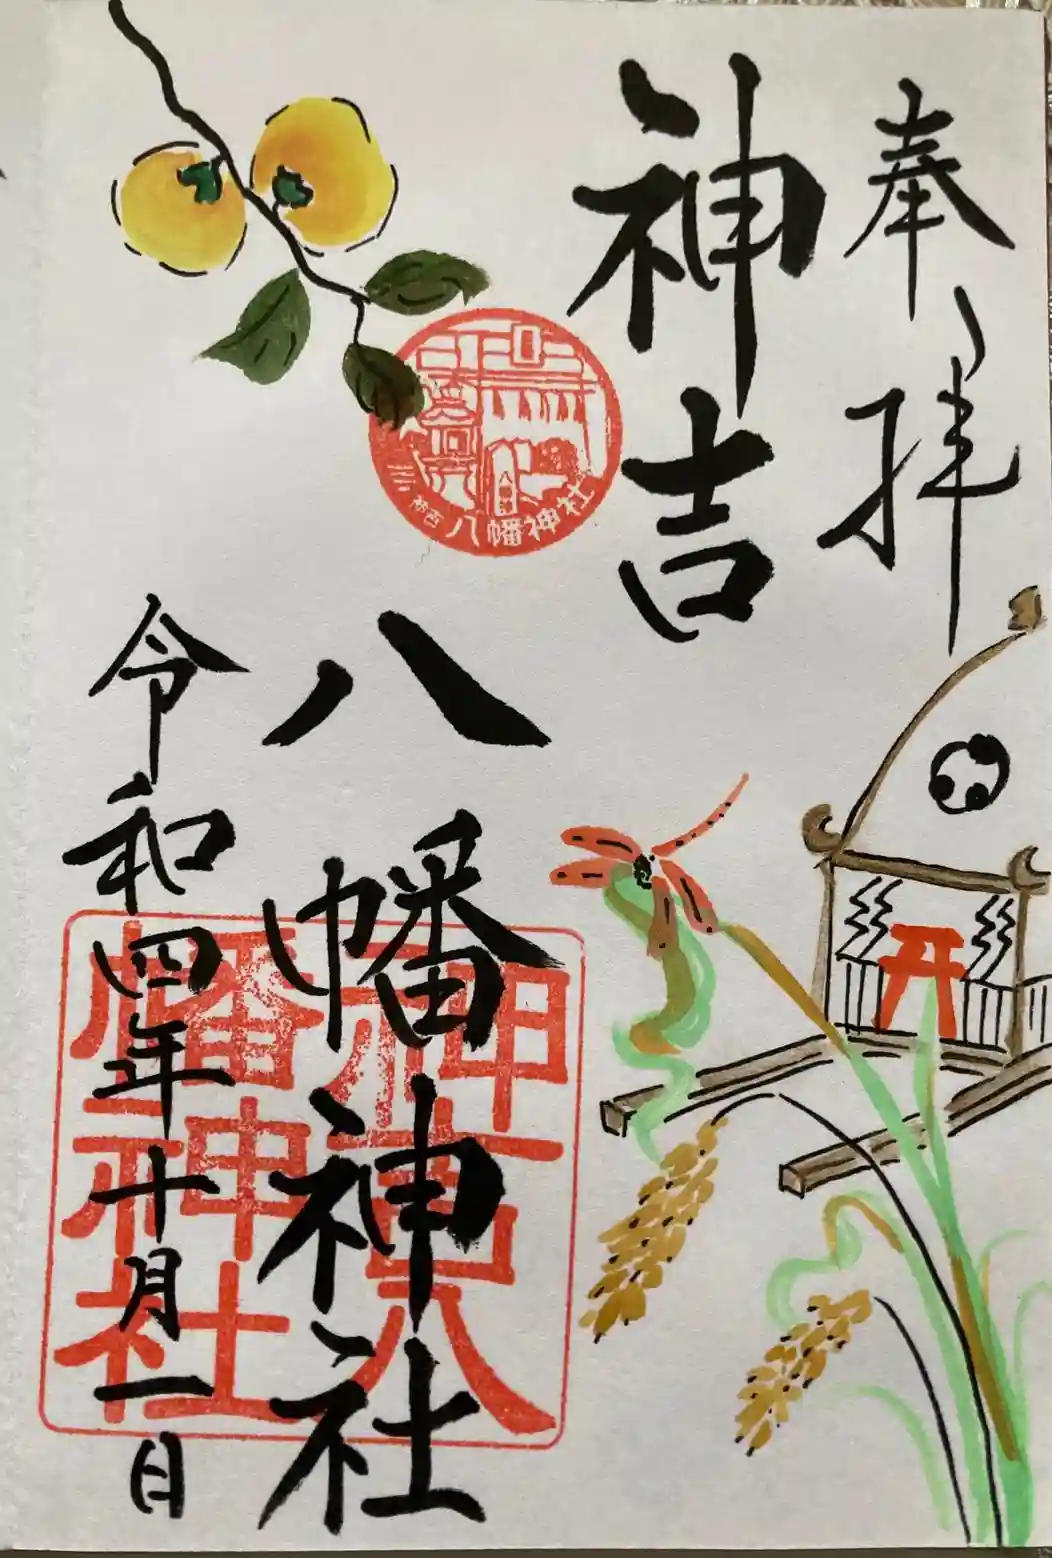 奉拝
神吉
八幡神社
令和四年十月一日
神吉八
幡神社
神吉 八幡神社